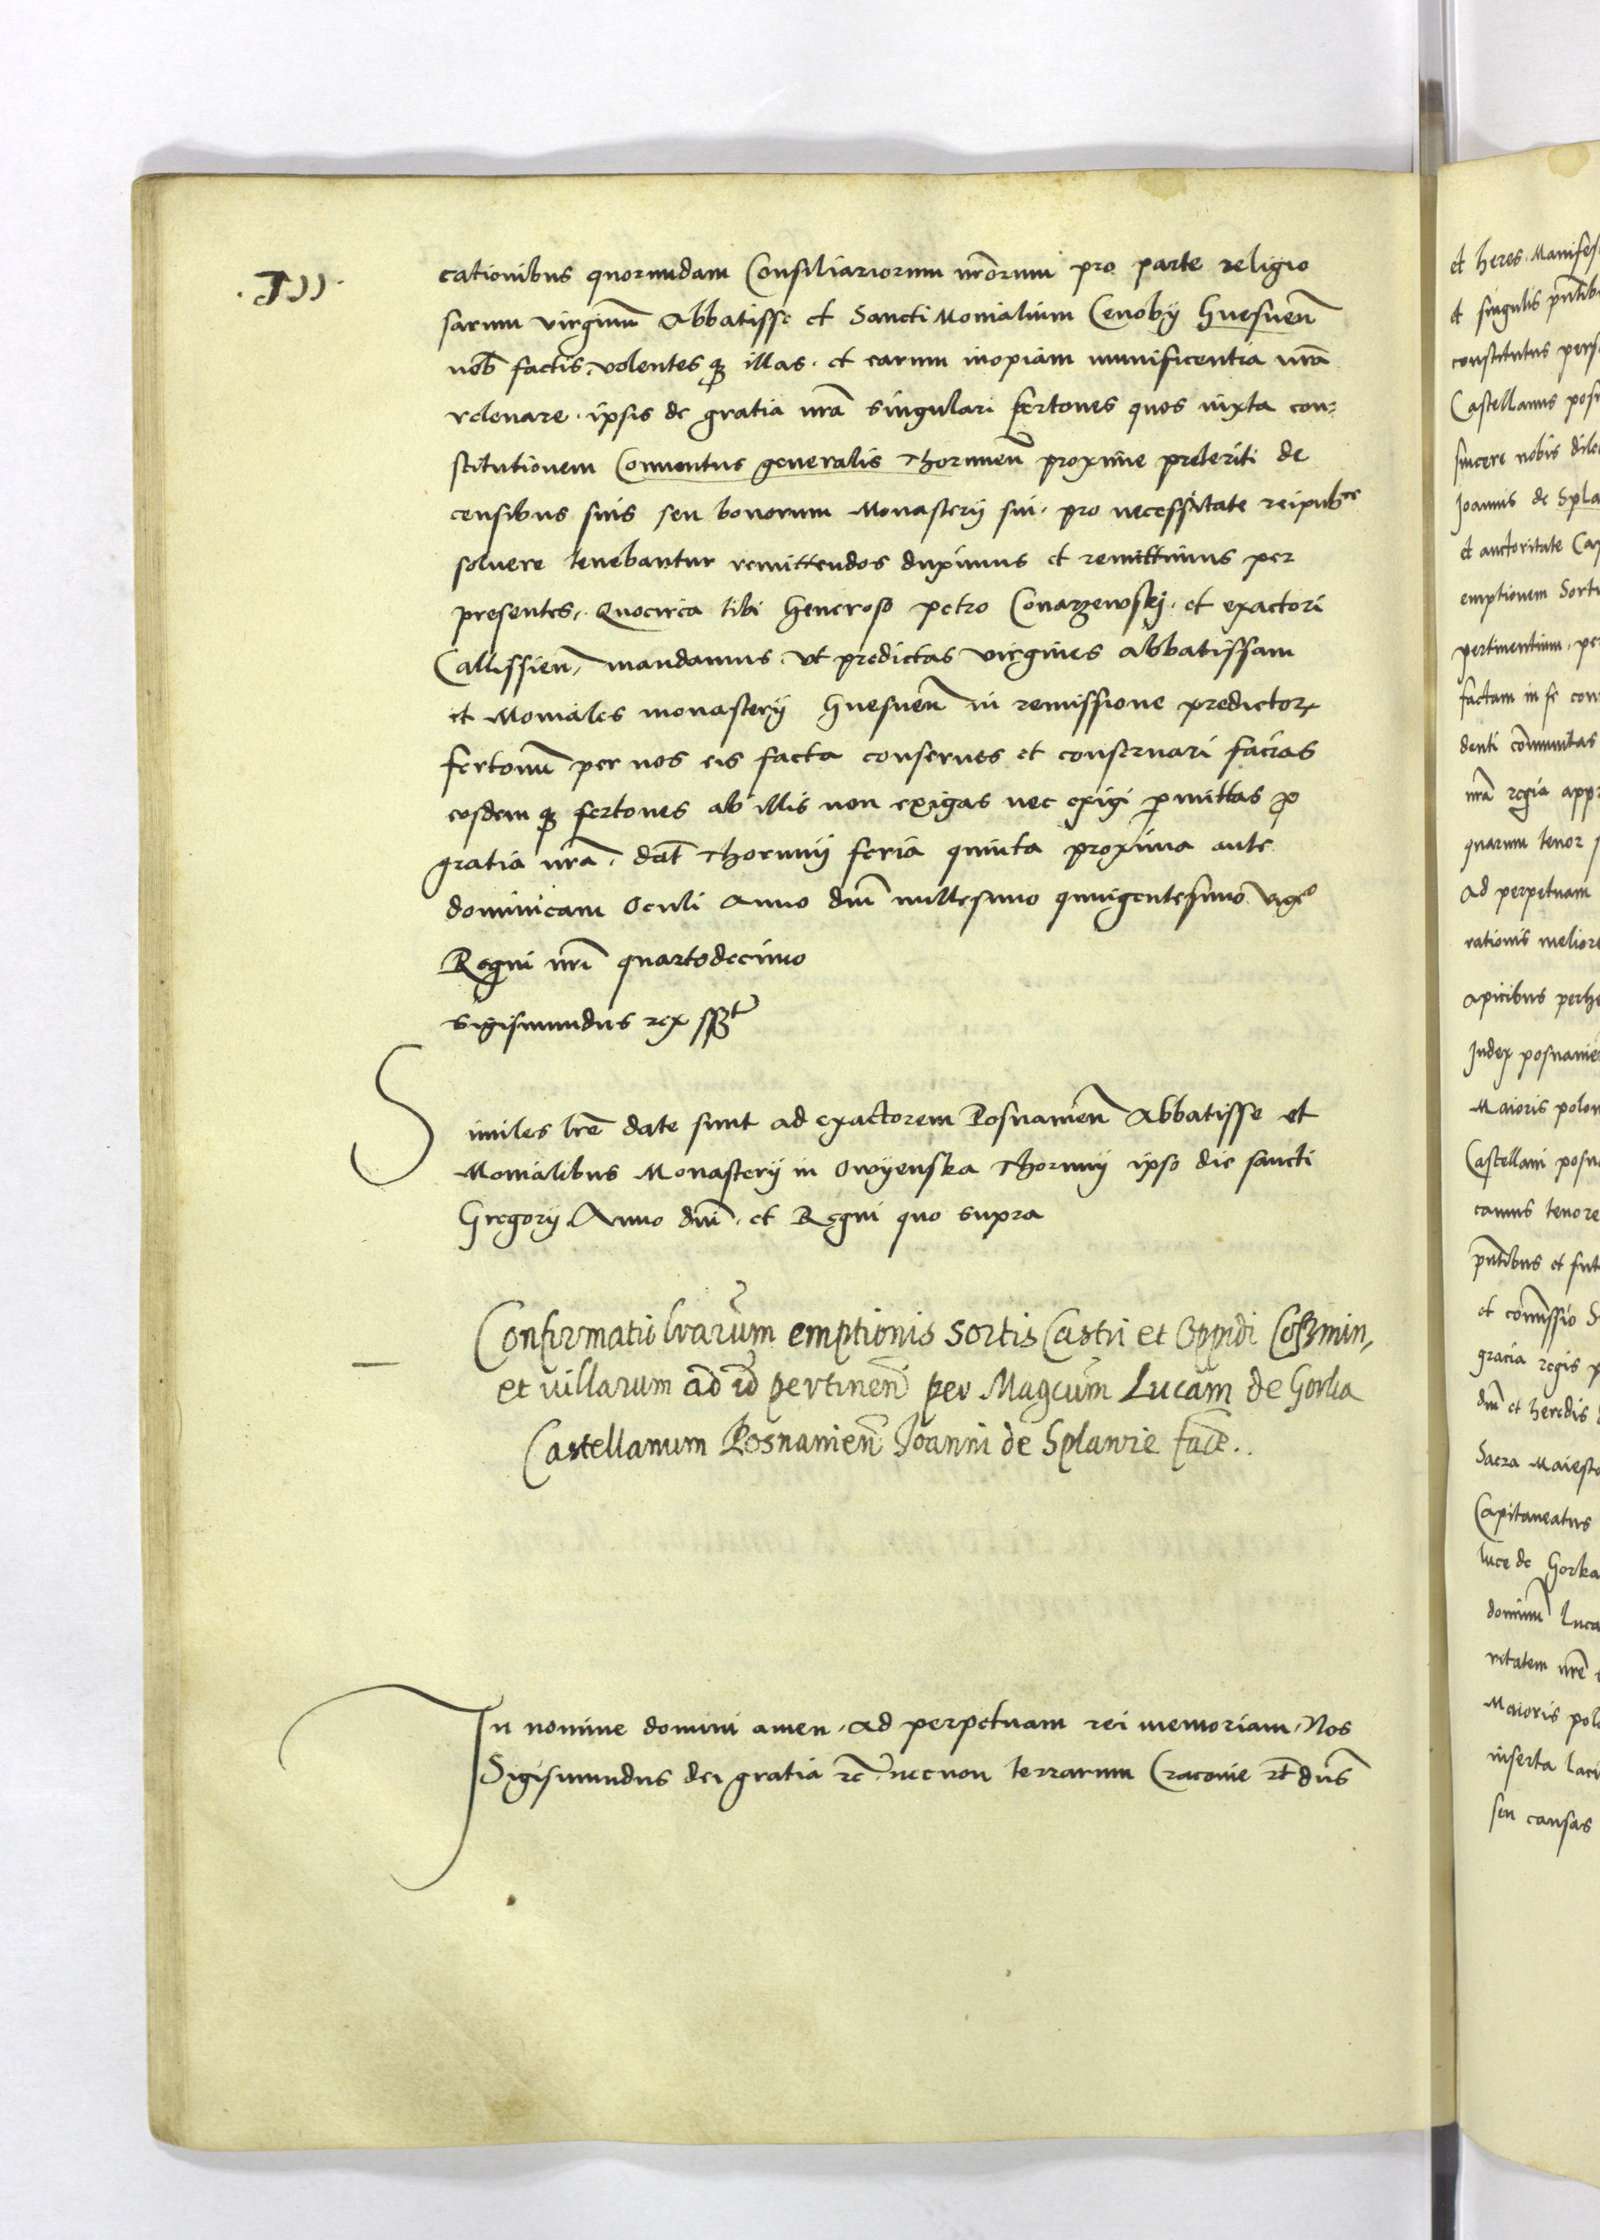 cationibus quorundam Consiliariorum nrōrum pro parte religio
sarum virginum Abbatisse et Sanctimonialium Cenobij Gnesnen̄
nob̄ factis, volentes q3 illas et earum inopiam munificentia nrā
relevare, ipsis de gratia nrā singulari fertones quos iuxta con-
stitutionem Conventus generalis Thorunen̄ proxime preteriti de
censibus suis seu bonorum Monasterij sui, pro necessitate reipubce
solvere tenebantur remittendos duximus et remittimus per
presentes, Quocirca tibi Generoso petro Conarzewskj, et exactori
Callissien̄, mandamus, vt predictas virgines abbatissam
et Moniales monasterij Gnesnen̄ in remissione predictor
fertonū per nos eis facta conserves et conservari facias
eosdem q3 fertones ab illis non exigas nec exigi pmittas p
gratia nrā, dat̄ Thorunij feria quinta proxima ante
dominicam Oculi Anno dnī millesimo quingentesimo vigo
Regni nrī quartodecimo
Sigismundus rex sspt
Similes lrē date sunt ad exactorem Posnanien̄ Abbatisse et
Monialibus Monasterij in Owyenska Thorunij ipso die sancti
Gregorij Anno dnī, et Regni quo supra
Confirmatio lrarum emptionis sortis Castri et Oppidi Coszmin,
et villarum ad id pertinen̄ per Magcum Lucam de Gorka
Castellanum Posnanien̄ Joanni de Splawie facte.
In nomine domini amen, Ad perpetuam rei memoriam, Nos
Sigismundus dei gratia rc̄ necnon terrarum Cracovie rc̄ dn̄s
et heres, Manifes
et singulis pn̄tib
constitutus pers
Castellanus posn
sincere nobis dile
Joannis de Spla
et auctoritate Cap
emptionem Sorti
pertinentium, per
factam in se con
denti communitas
nrā regia appr
quarum tenor
Ad perpetuam
rationis melior
apicibus perhe
Judex posnanien
Maioris polon
Castellani posn
camus tenore
pn̄tibus et fut
et commissio
gracia regis p
dnī et heredis
Sacra Maiesta
Capitaneatus
luce de Gorka
dominū luca
ritatem nrē
Maioris polo
inserta laci
seu causas